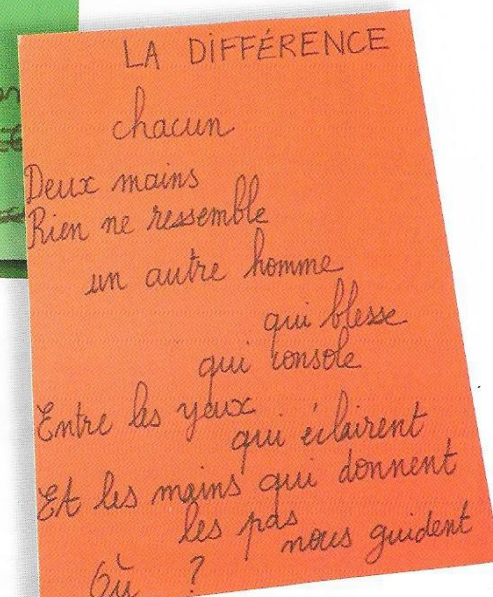 LA DIFFÉRENCE
chacun
Deux mains
Rien ne ressemble
un autre homme
qui blesse
qui console
Entre les yeux
qui éclairent
Et les mains qui donnent
les pas
nous guident
Où ?